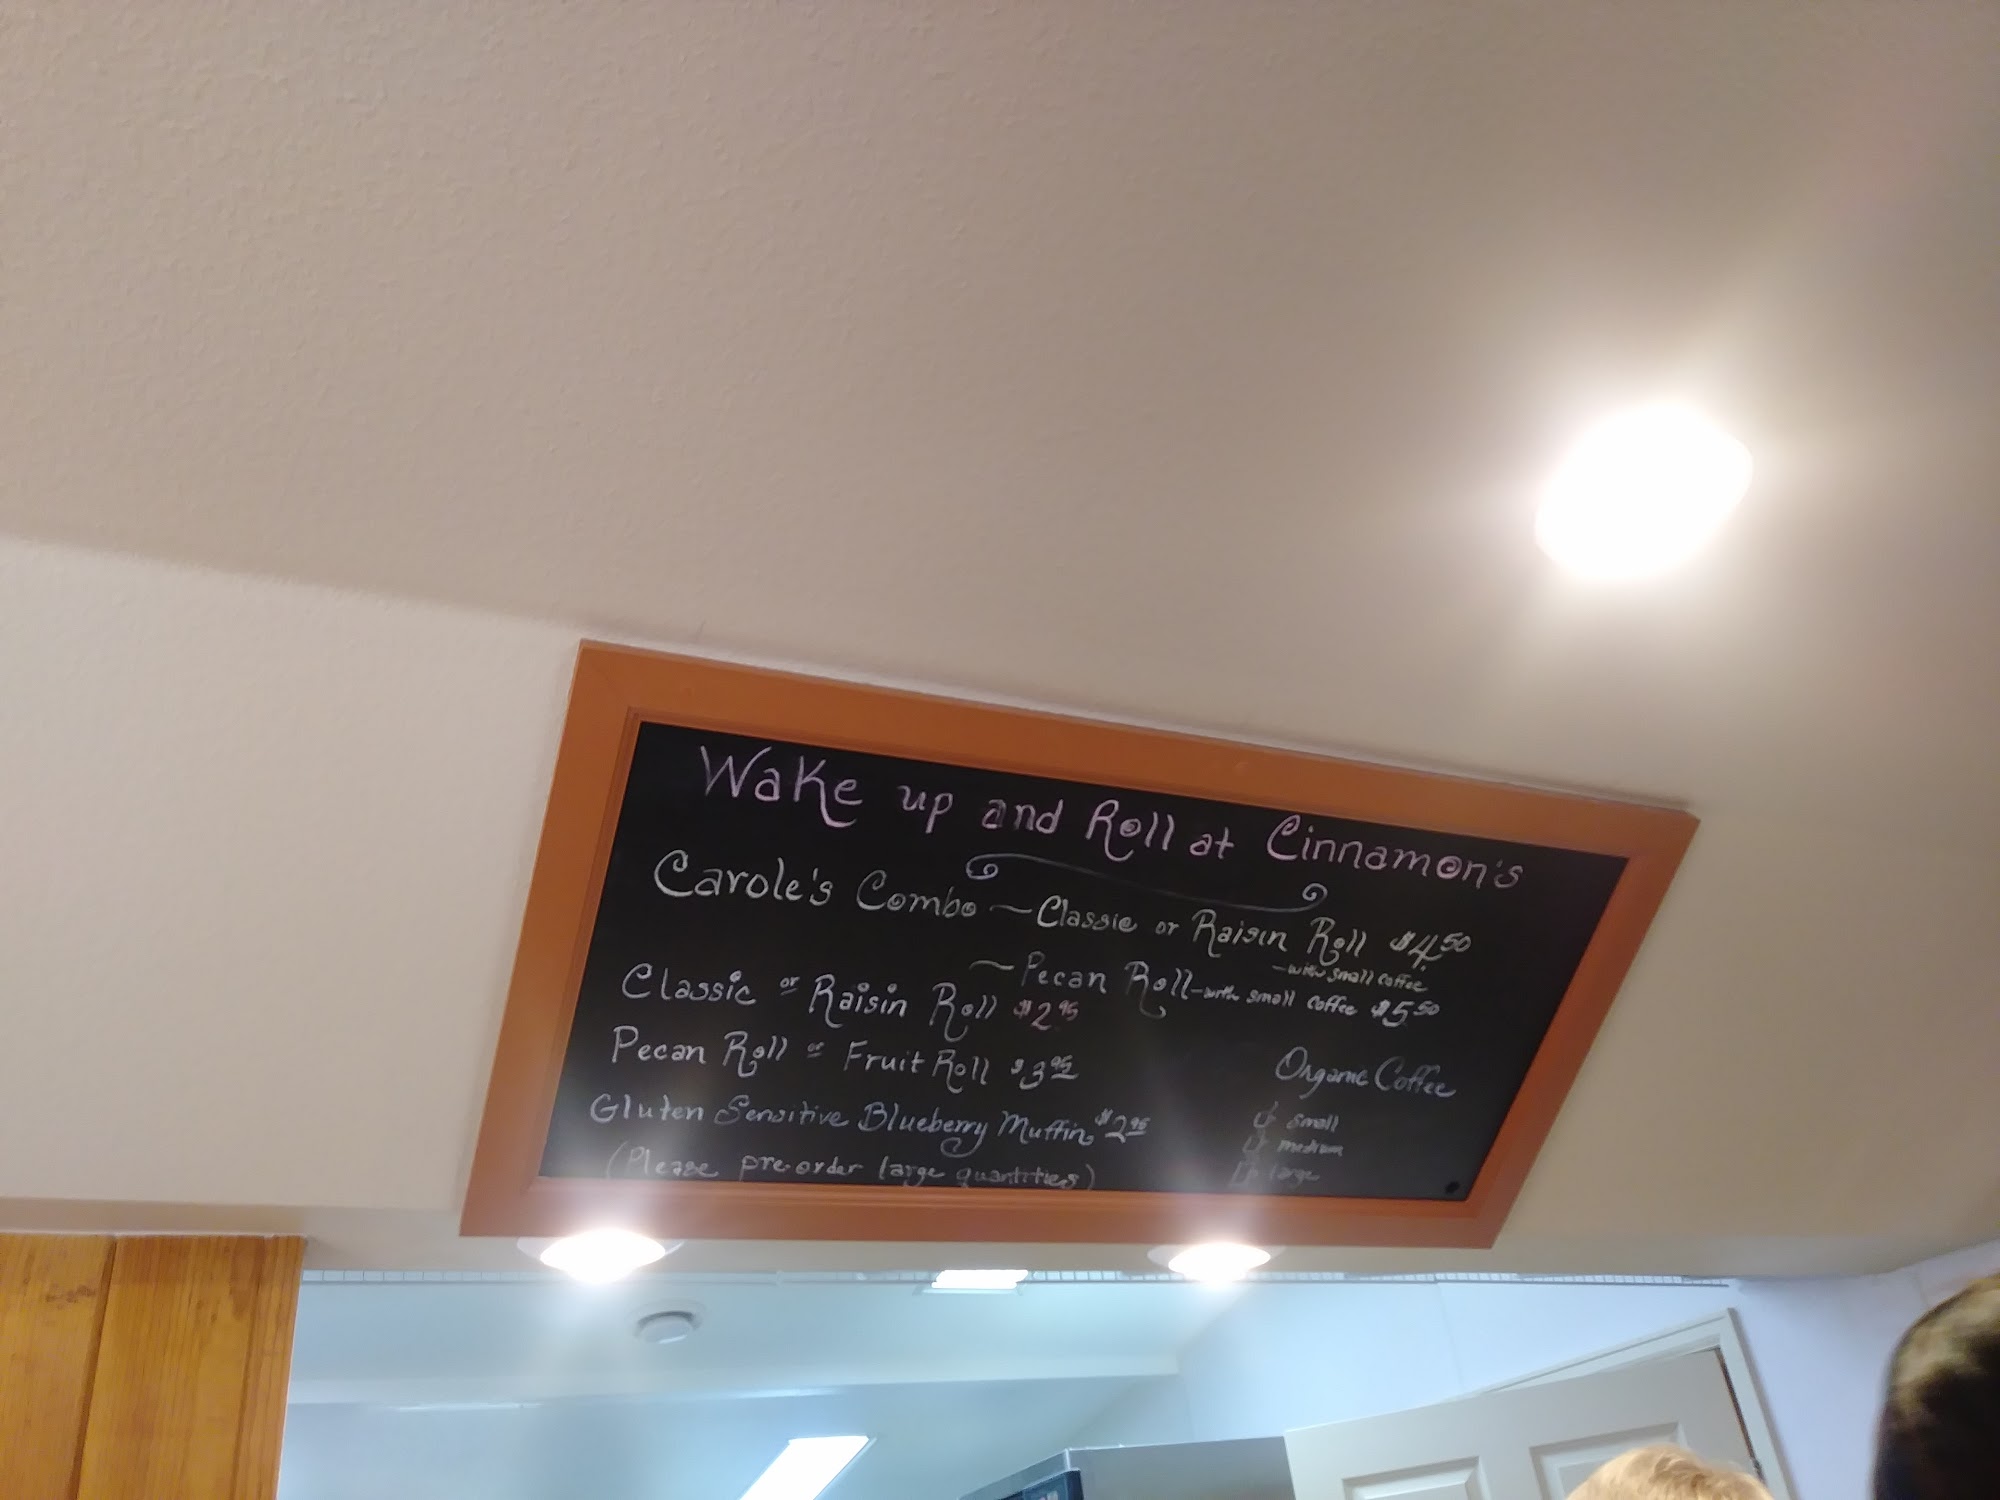 Wake up and Roll at Cinnamon's
Carole's Combo ~ Classic or Raisin Roll $4.50
- with small coffee
~ Pecan Roll - with small coffee $5.50
Classic or Raisin Roll $2.95
Pecan Roll or Fruit Roll $3.95
Gluten Sensitive Blueberry Muffin $2.95
(Please pre-order large quantities)
Organic Coffee
small
medium
large